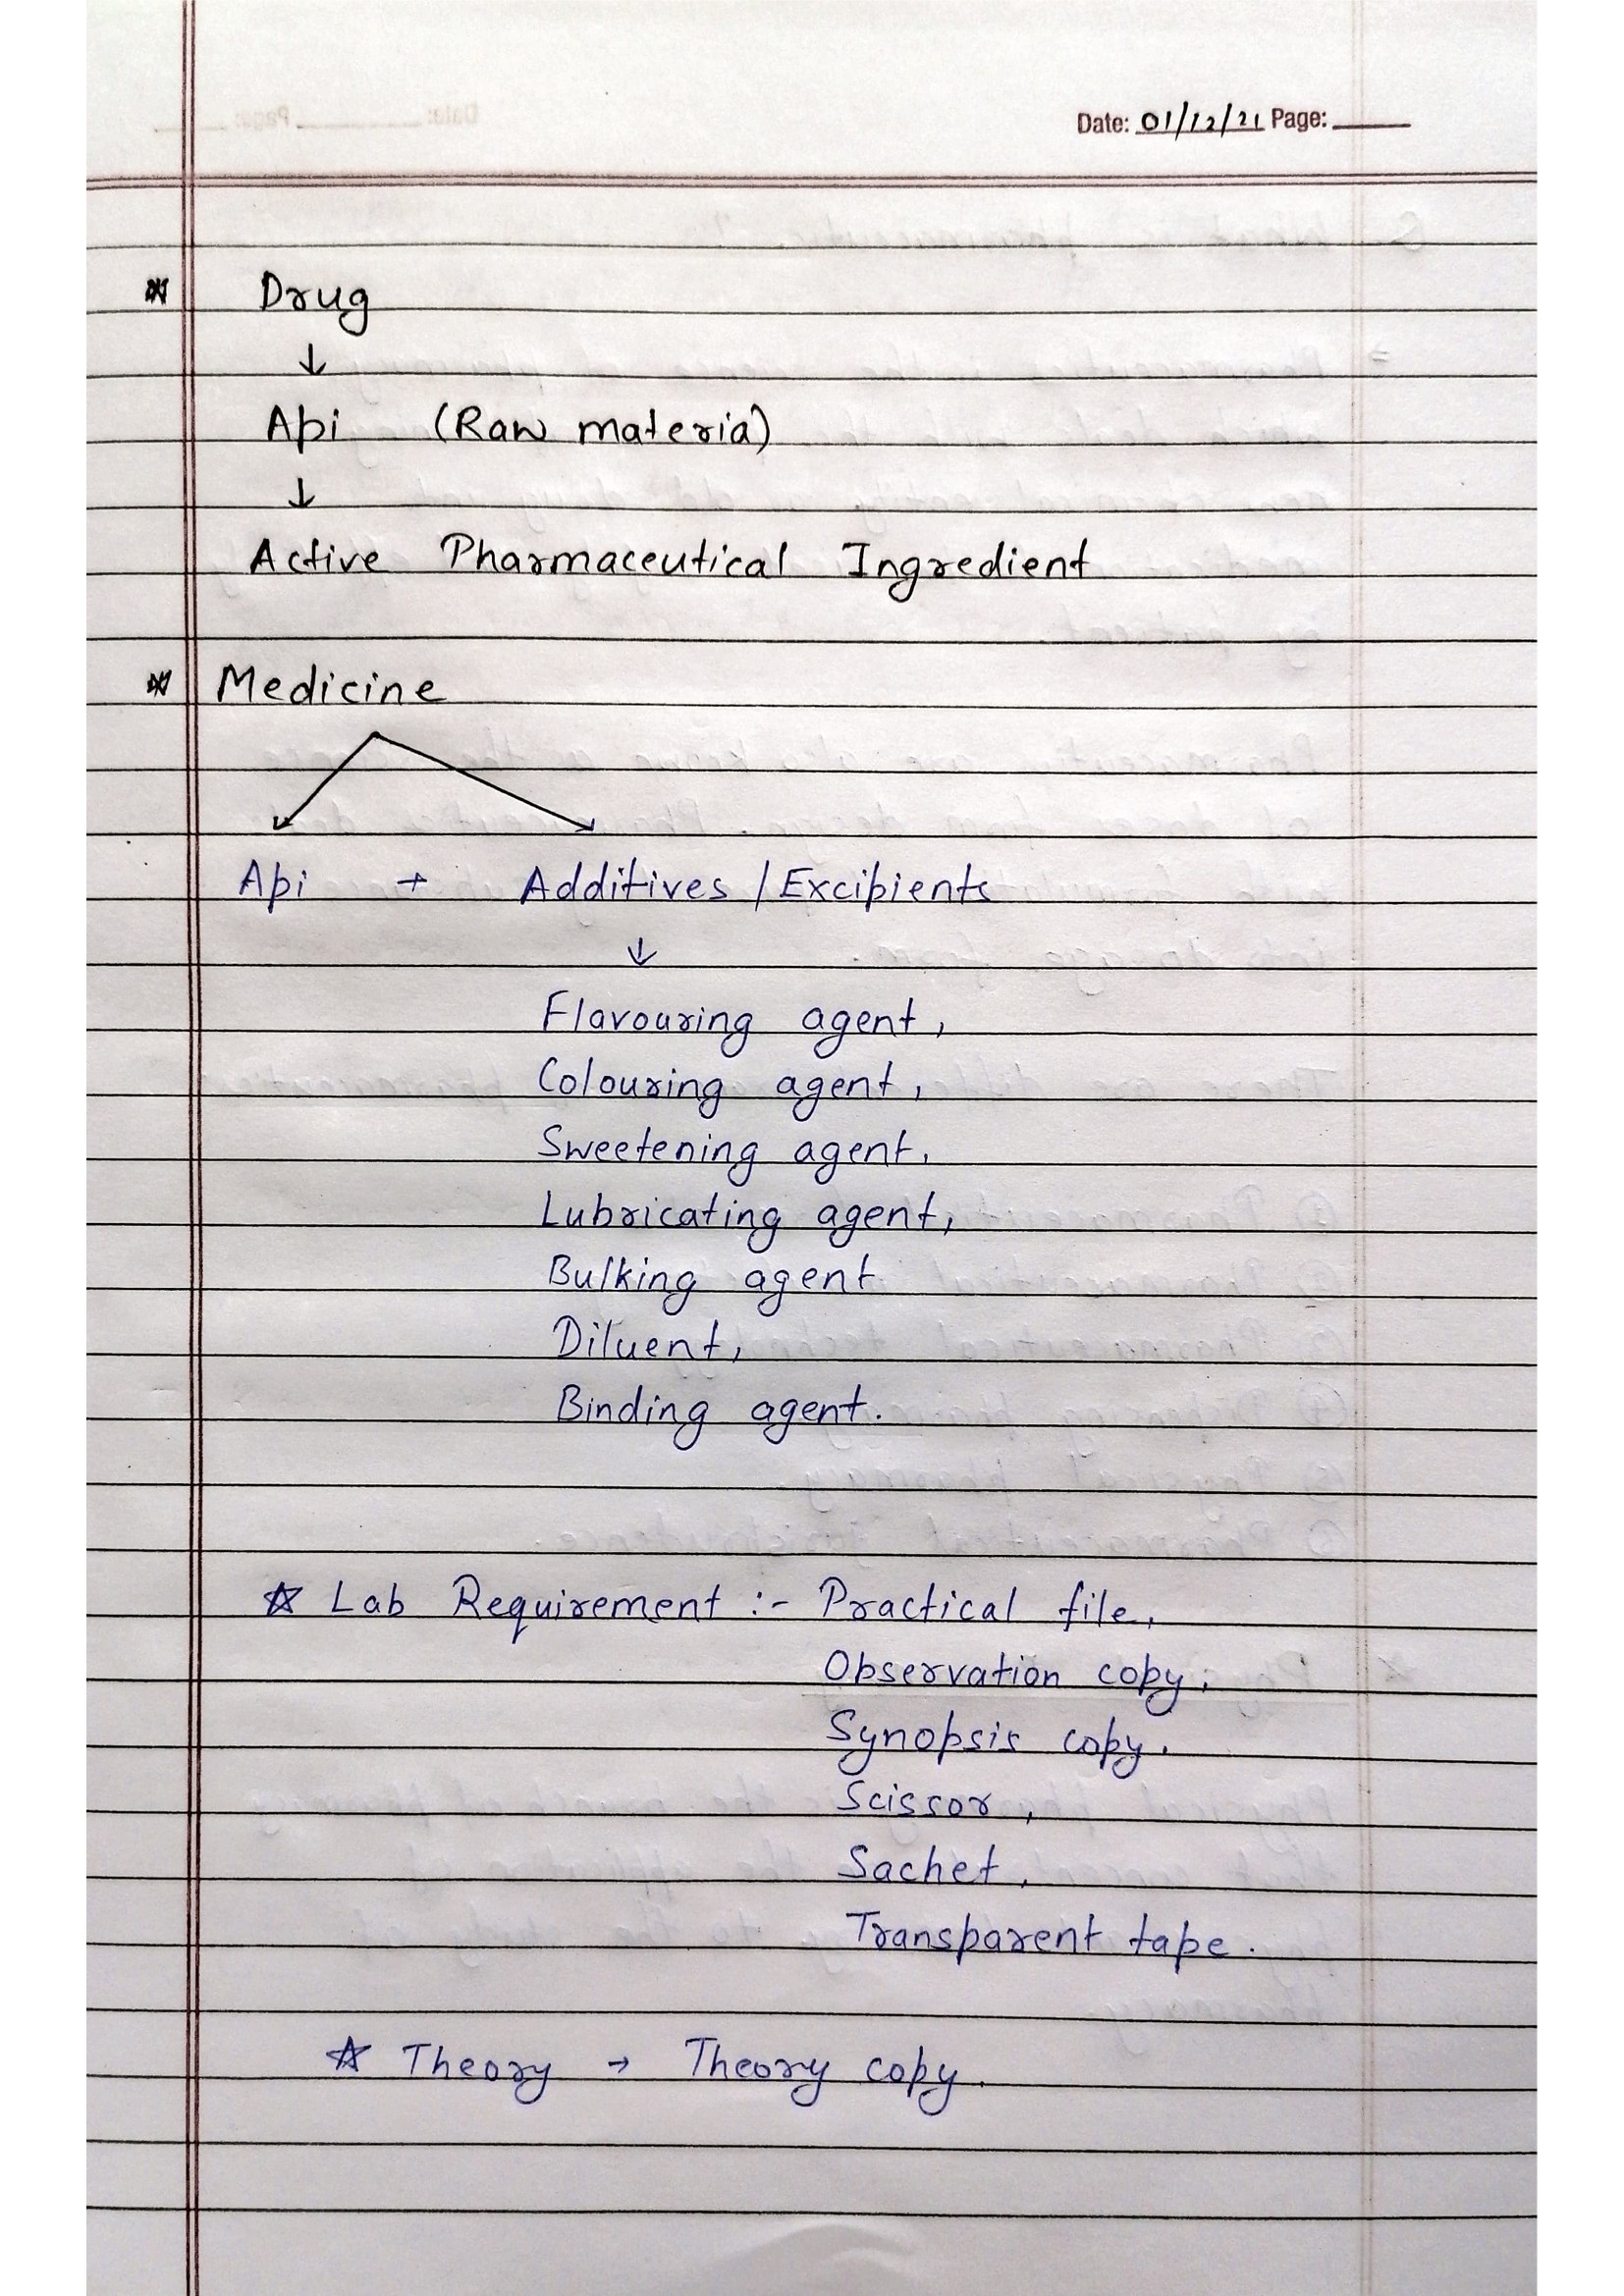 Date: 01/12/21 Page:
Drug
↓
Api (Raw materia)
↓
Active Pharmaceutical Ingredient
Medicine
Api + Additives / Excipients
↓
Flavouring agent,
Colouring agent,
Sweetening agent,
Lubricating agent,
Bulking agent
Diluent,
Binding agent.
☆ Lab Requirement :- Practical file,
Observation copy,
Synopsis copy.
Scissor,
Sachet,
Transparent tape.
☆ Theory → Theory copy.